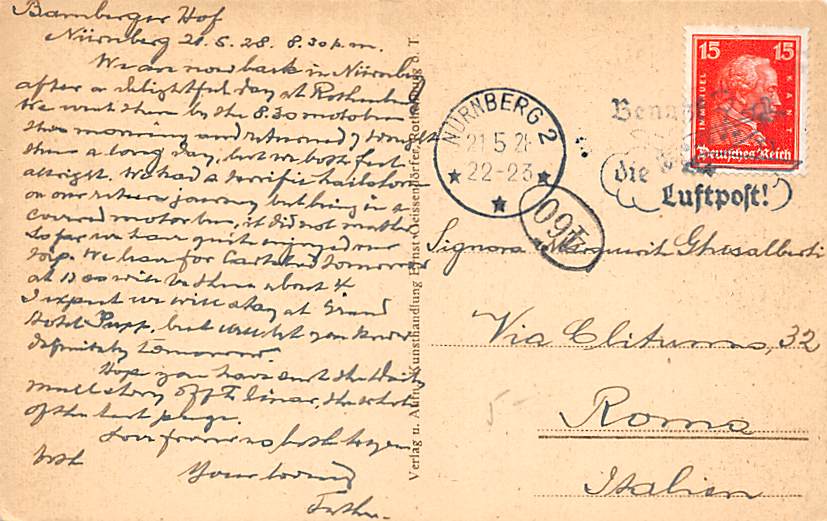 Bamberger Hof
Nürnberg 21.5.28. 8.30 p.m.
We are now back in Nürnberg
after a delightful day at Rothenburg
We went there by the 8.30 motobus
this morning and returned 7 tonight
thus a long day, but we both feel
alright. We had a terrific hailstorm
on our return journey but being in a
covered motor bus, it did not matter
So far we have quite enjoyed our
trip. We leave for Carlsbad tomorrow
at 12 so will be there about 4
I expect we will stay at Grand
Hotel Pupp, but will let you know
definitely tomorrow.
Hope you have sent the Daily
Mail story off the
of the last page.
Love from us both to you
both Your loving
Father
Verlag u. Aufn. Kunsthandlung Ernst Geissendörfer, Rothenburg o. T.
NÜRNBERG 2
21 5 28
22-23
die
Luftpost!
15 15
IMMANUEL KANT
Deutsches Reich
Signora Ghisalberti
Via Clitunno, 32
Roma
Italien